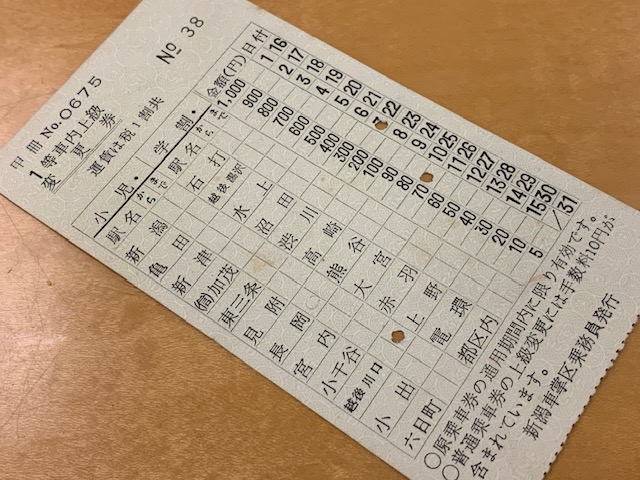 甲冊 No.0675
No 38
1等車内上級
変更券
運賃は税1割共
小児・学割・
駅名 から まで
新潟
亀田
新津
(信)加茂
東三条
見附
長岡
宮内
小千谷
越後川口
小出
六日町
駅名 から まで
石打
越後湯沢
水上
沼田
渋川
高崎
熊谷
大宮
赤羽
上野
電環
都区内
金額(円)
1,000
900
800
700
600
500
400
300
200
100
90
80
70
60
50
40
30
20
10
5
日付
1 16
2 17
3 18
4 19
5 20
6 21
7 22
8 23
9 24
10 25
11 26
12 27
13 28
14 29
15 30
/ 31
○原乗車券の通用期間内に限り有効です。
○普通乗車券の上級変更には手数料10円が
含まれています。
新潟車掌区乗務員発行